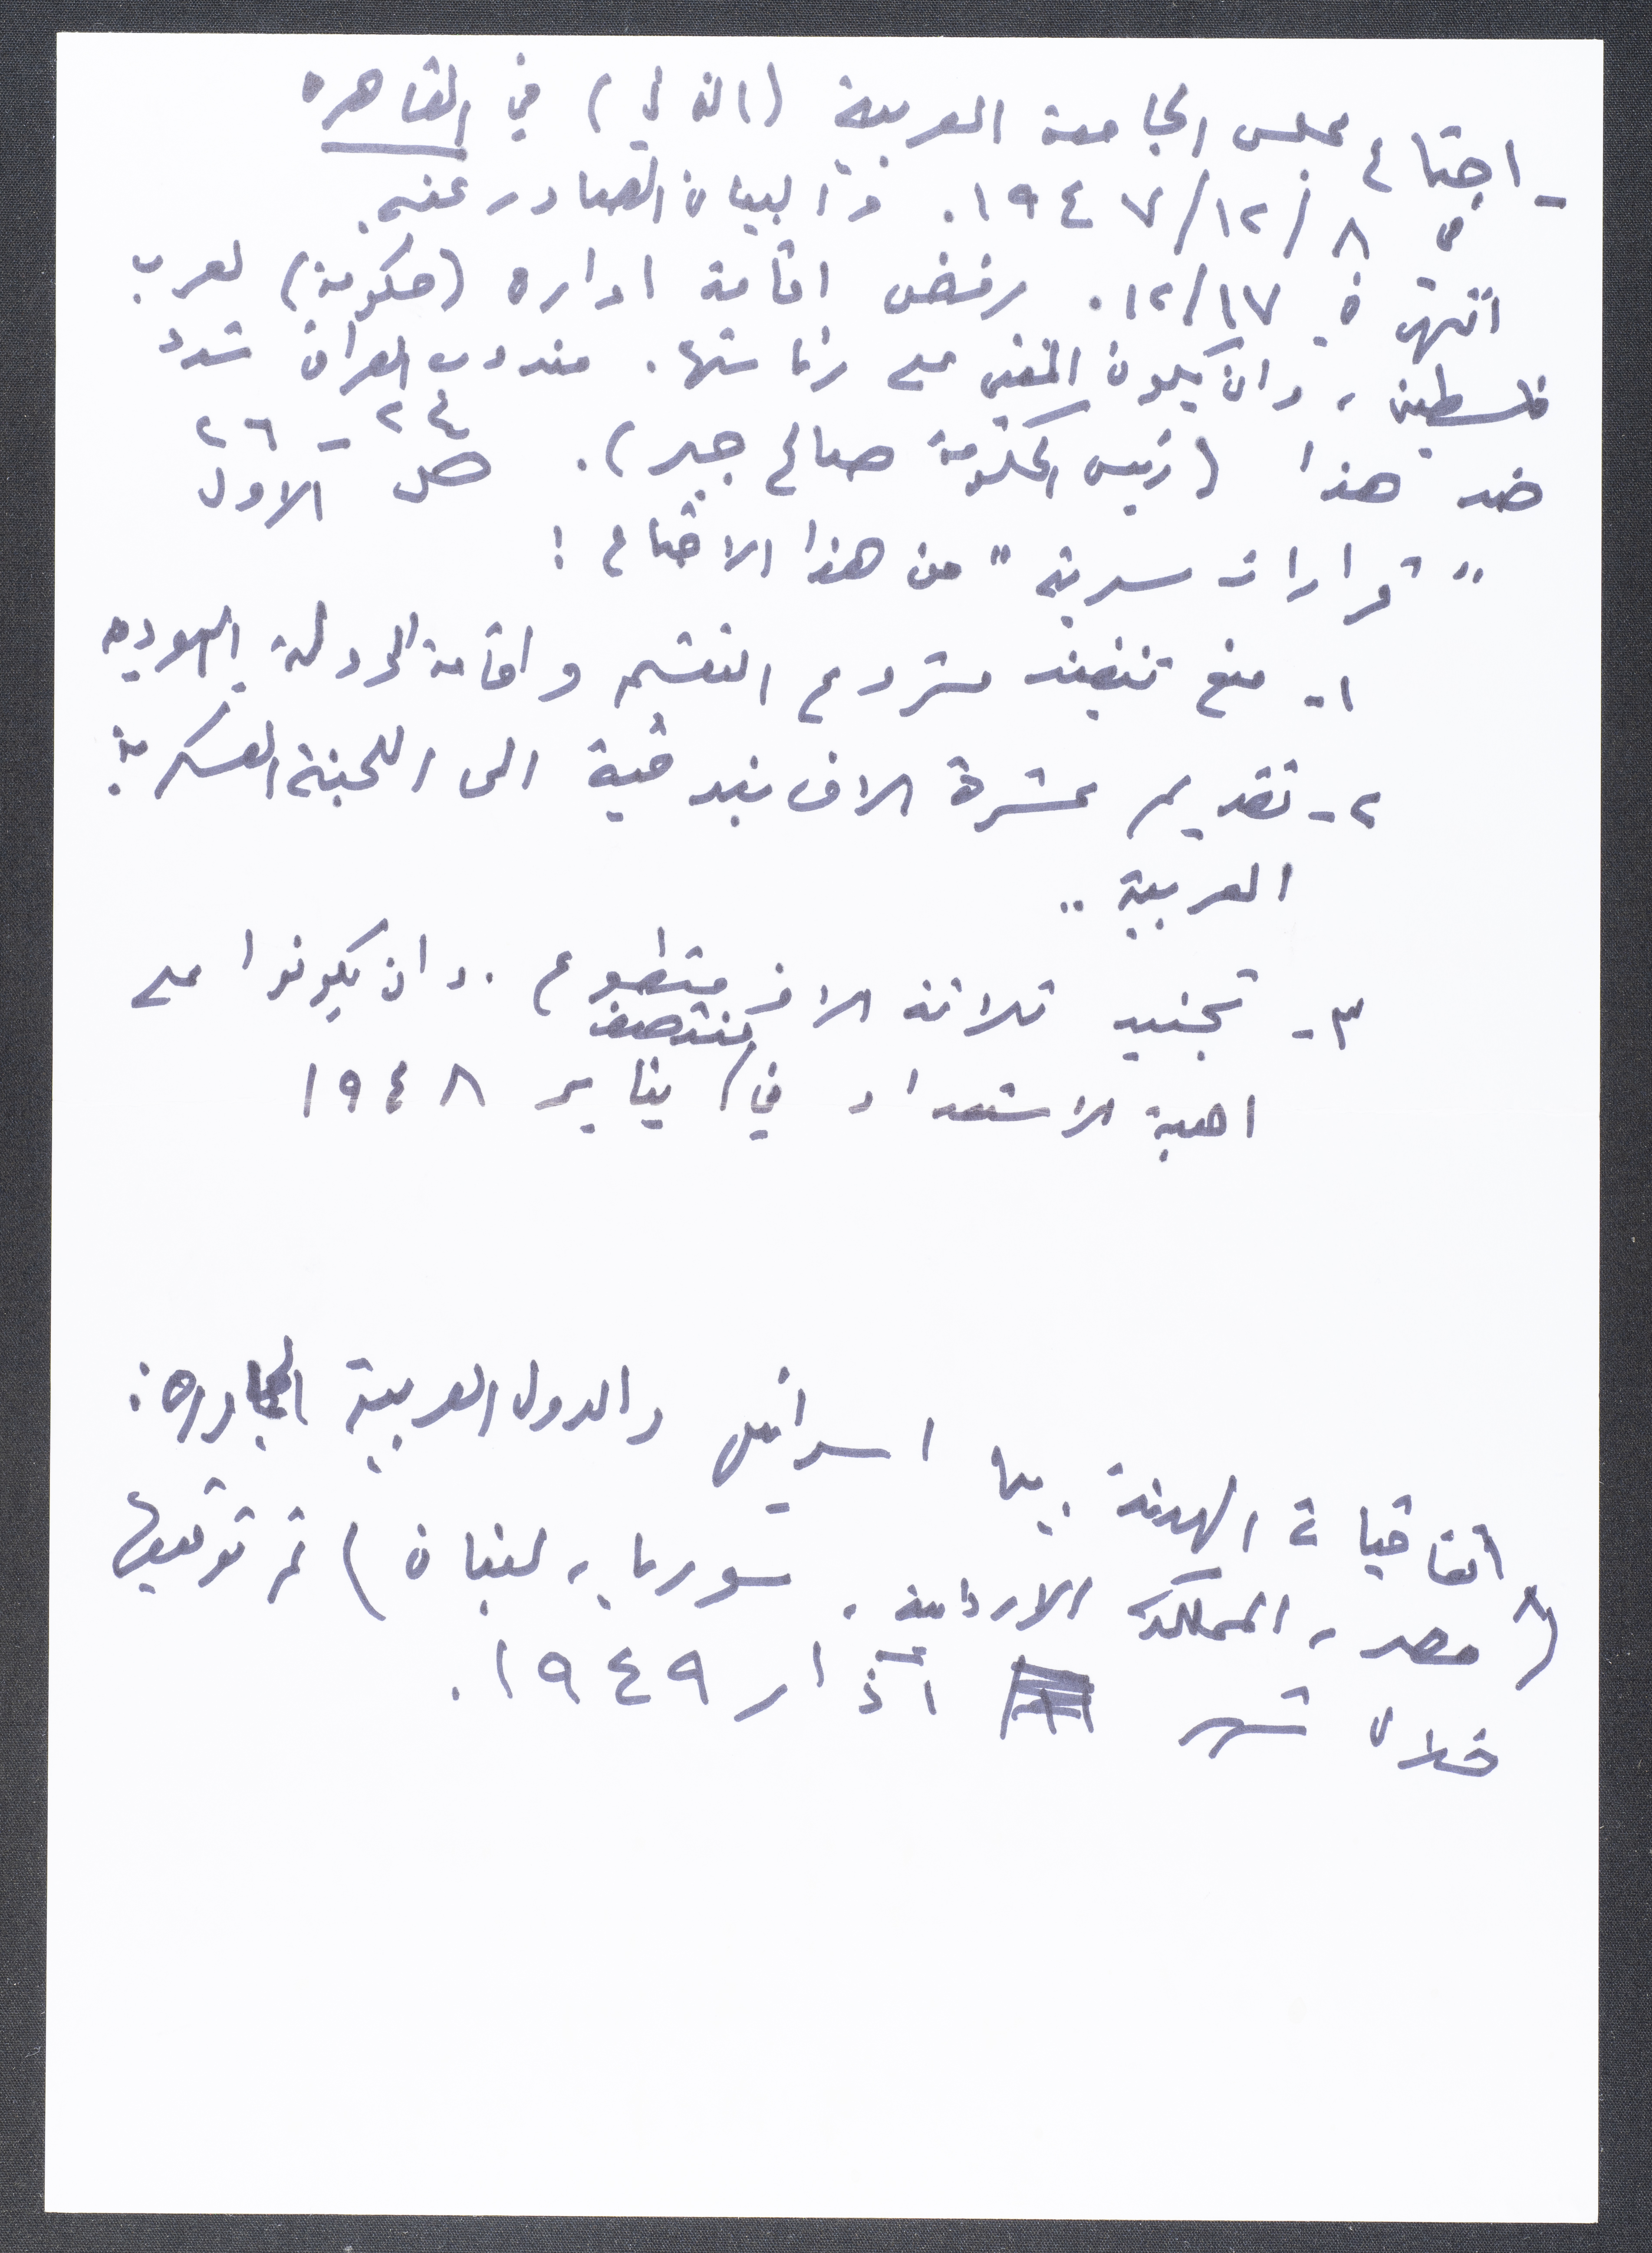 - اجتماع مجلس الجامعة العربية (التالي) في القاهره
في ٨/١٢/١٩٤٧. البيان الصادر عنه.
انتهى في ١٢/١٧. رفض اقامة اداره (حكومة) لعرب
فلسطين، وان يكون المفتي على رئاستها. مندوب العراق شدد
ضد هذا (رئيس الحكومة صالح جبر). ص ٢٤-٢٦
الاول
"قرارات سرية" من هذا الاجتماع:
١- منع تنفيذ مشروع التقسيم واقامة الدولة اليهوديه
٢- تقديم عشرة الاف بندقية الى اللجنة العسكرية
العربية ..
٣- تجنيد ثلاثة الاف متطوع. وان يكونوا على
اهبة الاستعداد في منتصف يناير ١٩٤٨
اتفاقيات الهدنة بين اسرائيل والدول العربية المجاوره:
(مصر، المملكة الاردنية، سوريا، لبنان) تم توقيعها
خلال شهر آذار ١٩٤٩.